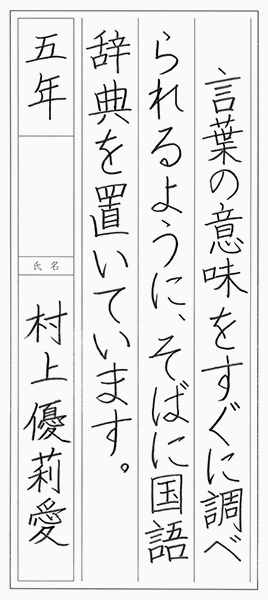 言葉の意味をすぐに調べ
られるように、そばに国語
辞典を置いています。
五年
氏名
村上優莉愛